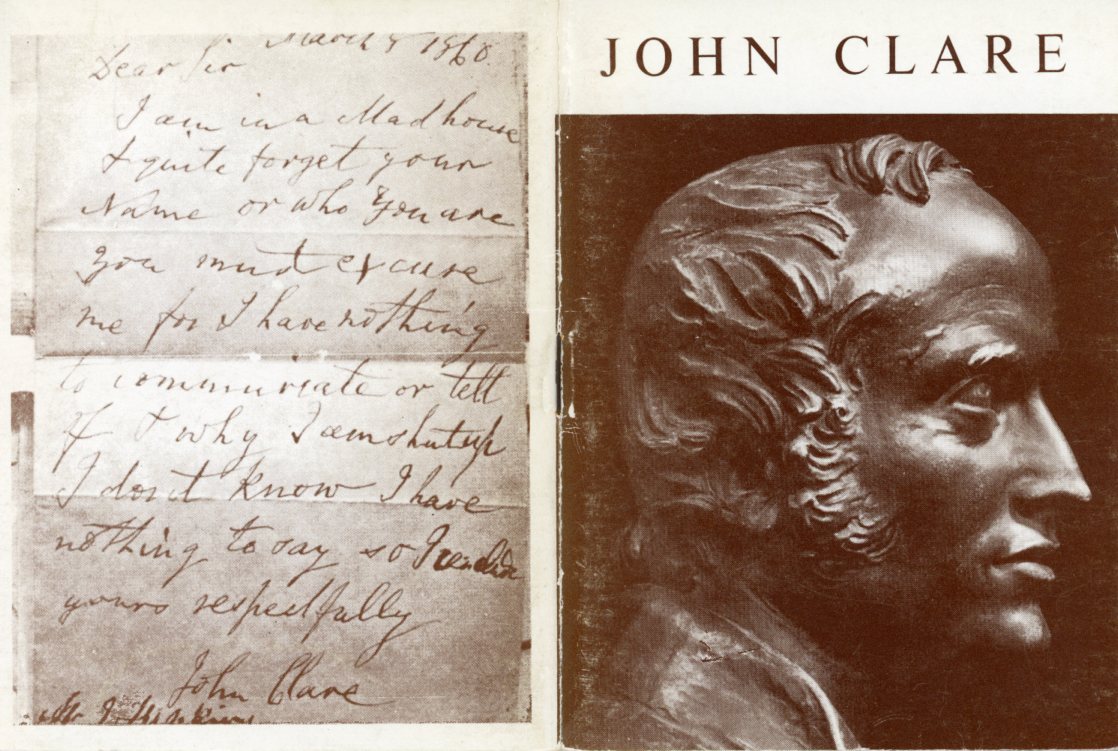 March 8 1860
Dear Sir
I am in a Mad house
& quite forget your
Name or who you are
you must excuse
me for I have nothing
to communicate or tell
of & why I am shut up
I dont know I have
nothing to say so I conclude
yours respectfully
John Clare
Mr J Hipkins
JOHN CLARE